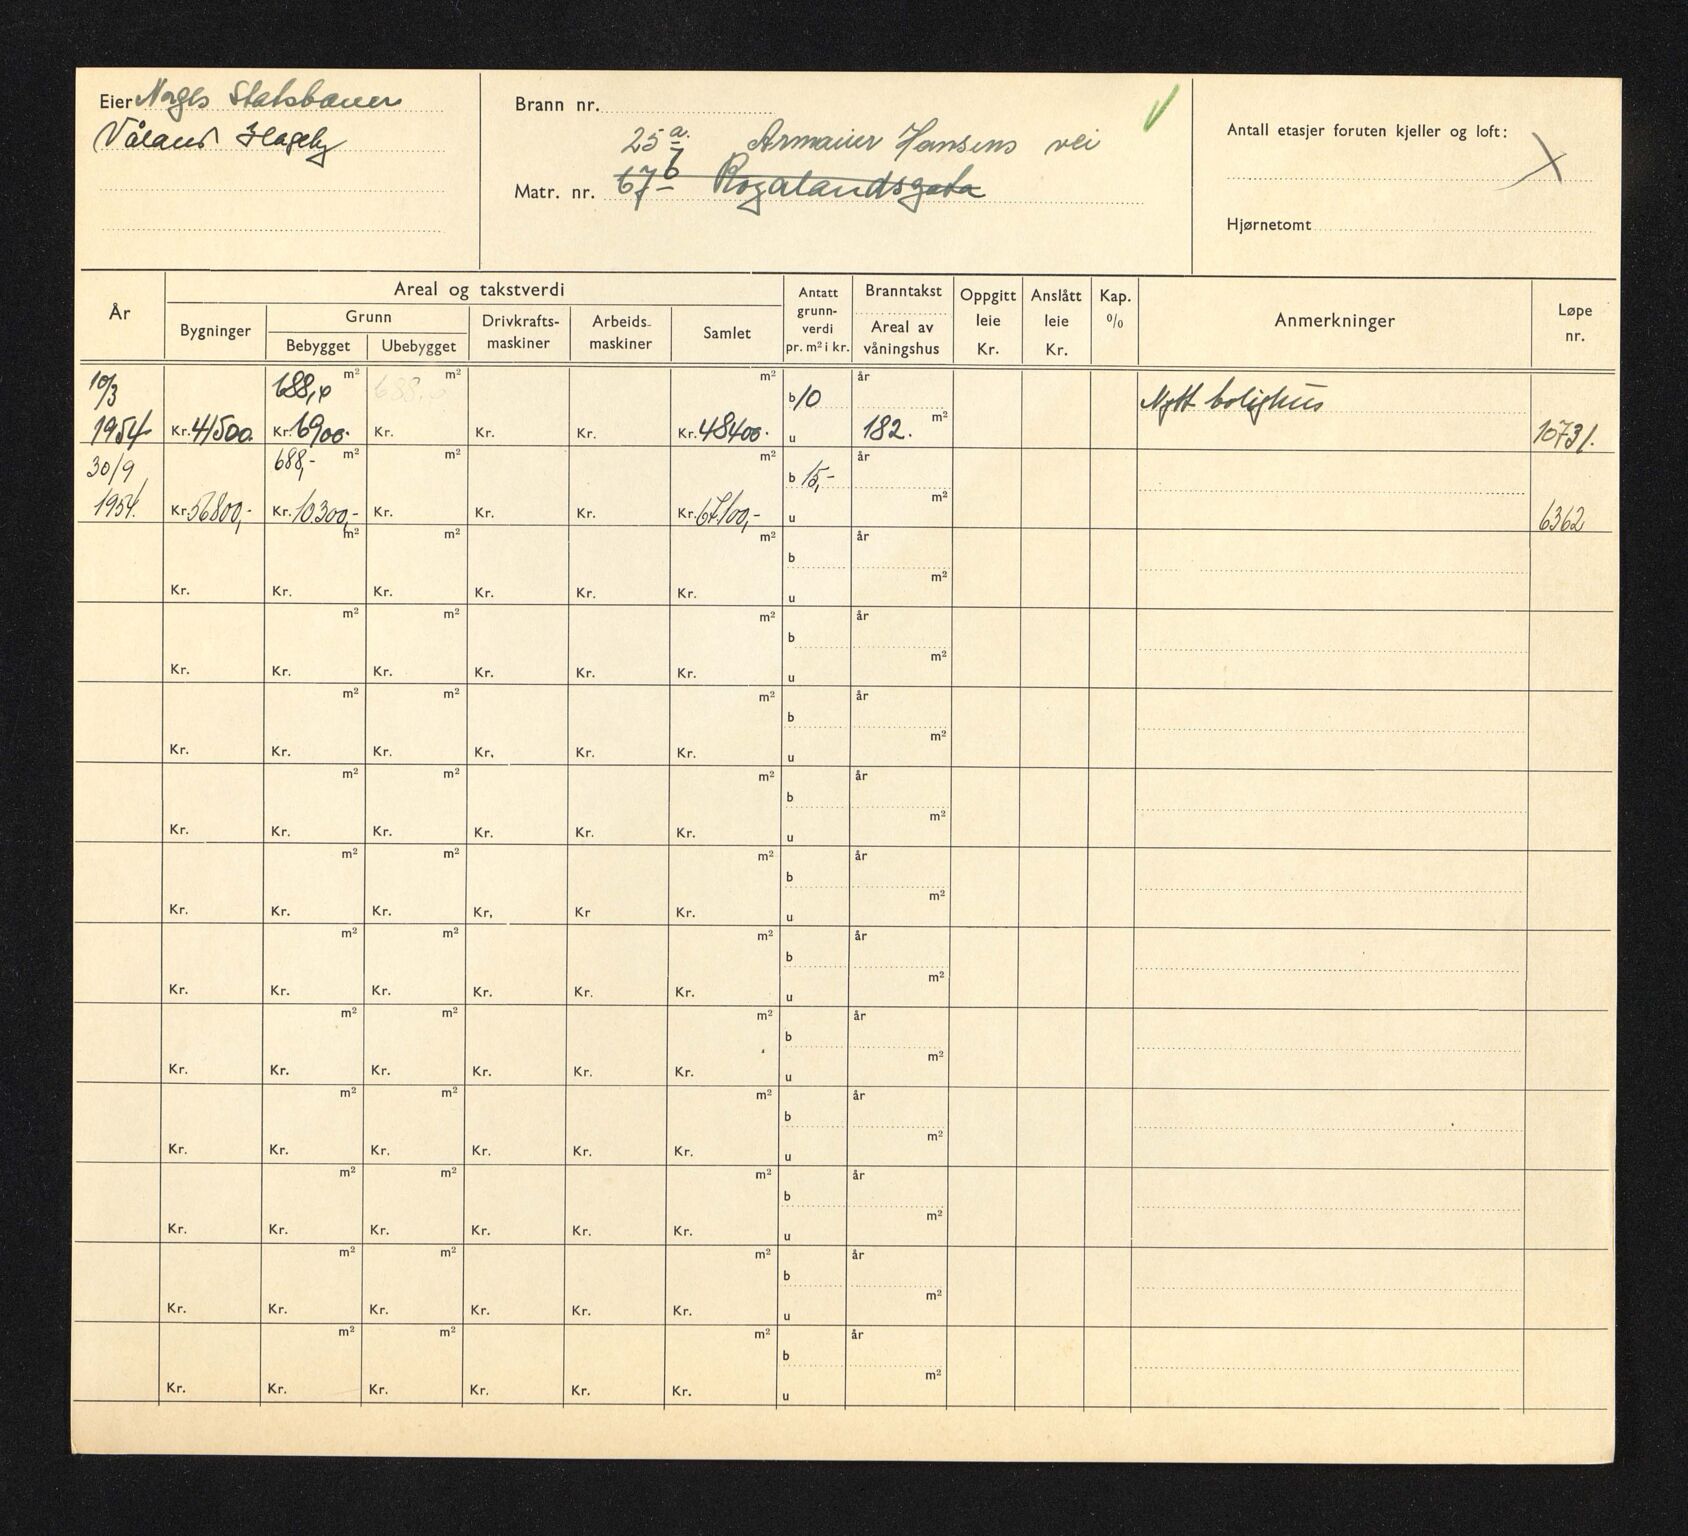 Eier Norges Statsbaner
Våland Hageby
Brann nr.
25 a. Armauer Hansens vei
Matr. nr. 67 b Rogalandsgata
Antall etasjer foruten kjeller og loft:
Hjørnetomt
År
Areal og takstverdi
Bygninger
Grunn
Bebygget
Ubebygget
Drivkrafts-
maskiner
Arbeids-
maskiner
Samlet
Antatt
grunn-
verdi
pr. m² i kr.
Branntakst
Areal av
våningshus
Oppgitt
leie
Kr.
Anslått
leie
Kr.
Kap.
%
Anmerkninger
Løpe
nr.
10/3 688,0 m² 688,0 m² m² b 10 år Nytt bolighus
1954 Kr. 41500. Kr. 6900. Kr. Kr. Kr. Kr. 48400. u 182. m² 10731.
30/9 688,- m² m² m² b 15,- år
1954. Kr. 56800,- Kr. 10.300,- Kr. Kr. Kr. Kr. 67.100,- u m² 6362
m² m² m² b år
Kr. Kr. Kr. Kr. Kr. Kr. u m²
m² m² m² b år
Kr. Kr. Kr. Kr. Kr. Kr. u m²
m² m² m² b år
Kr. Kr. Kr. Kr. Kr. Kr. u m²
m² m² m² b år
Kr. Kr. Kr. Kr. Kr. Kr. u m²
m² m² m² b år
Kr. Kr. Kr. Kr. Kr Kr. u m²
m² m² m² b år
Kr. Kr. Kr. Kr. Kr. Kr. u m²
m² m² m² b år
Kr. Kr. Kr. Kr. Kr. Kr. u m²
m² m² m² b år
Kr. Kr. Kr. Kr. Kr. Kr. u m²
m² m² m² b år
Kr. Kr. Kr. Kr. Kr. Kr. u m²
m² m² m² b år
Kr. Kr. Kr. Kr. Kr. Kr. u m²
m² m² m² b år
Kr. Kr. Kr. Kr. Kr. Kr. u m²